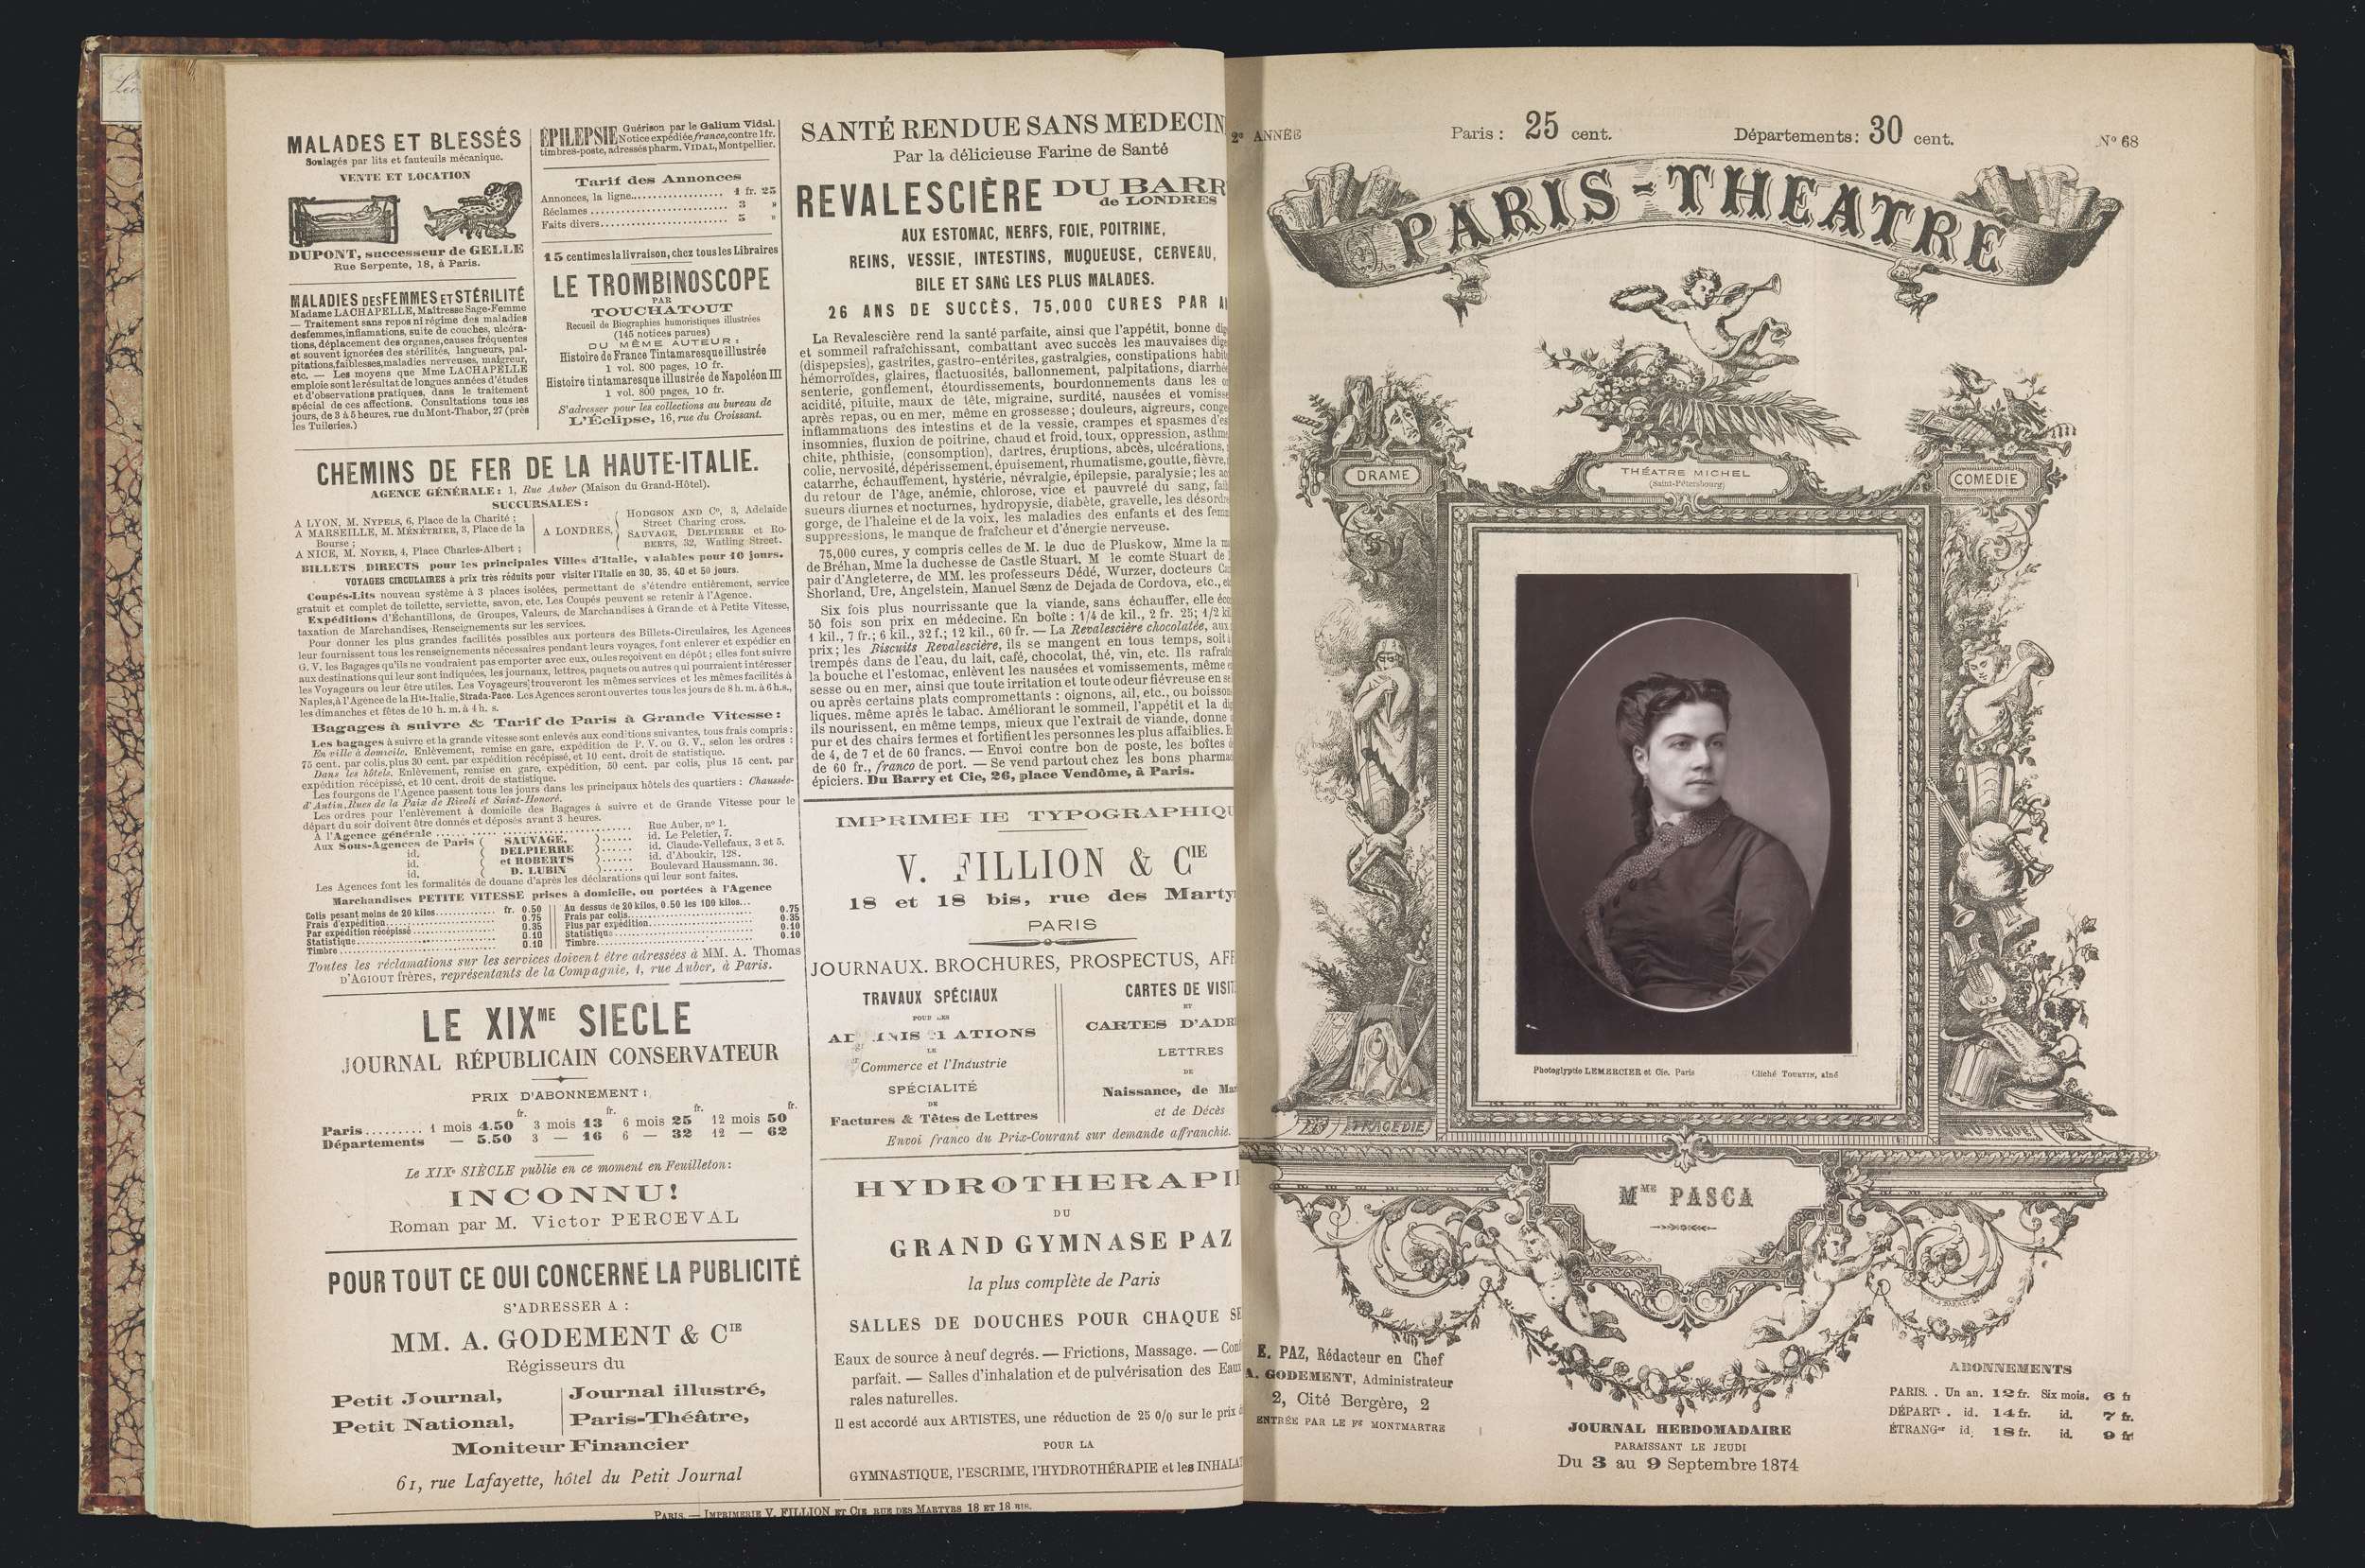 MALADES ET BLESSÉS
Soulagés par lits et fauteuils mécanique.
VENTE ET LOCATION
DUPONT, successeur de GELLE
Rue Serpente, 18, à Paris.
MALADIES DES FEMMES ET STÉRILITÉ
Madame LACHAPELLE, Maîtresse Sage-Femme
— Traitement sans repos ni régime des maladies
des femmes, inflamations, suite de couches, ulcéra-
tions, déplacement des organes, causes fréquentes
et souvent ignorées des stérilités, langueurs, pal-
pitations, faiblesses, maladies nerveuses, maigreur,
etc. — Les moyens que Mme LACHAPELLE
emploie sont le résultat de longues années d'études
et d'observations pratiques, dans le traitement
spécial de ces affections. Consultations tous les
jours, de 3 à 5 heures, rue du Mont-Thabor, 27 (près
les Tuileries.)
ÉPILEPSIE Guérison par le Galium Vidal.
Notice expédiée franco, contre 1 fr.
timbres-poste, adressés pharm. VIDAL, Montpellier.
Tarif des Annonces
Annonces, la ligne.. 1 fr. 25
Réclames 3 »
Faits divers 5 »
15 centimes la livraison, chez tous les Libraires
LE TROMBINOSCOPE
PAR
TOUCHATOUT
Recueil de Biographies humoristiques illustrées
(145 notices parues)
DU MÊME AUTEUR :
Histoire de France Tintamaresque illustrée
1 vol. 800 pages, 10 fr.
Histoire tintamaresque illustrée de Napoléon III
1 vol. 800 pages, 10 fr.
S'adresser pour les collections au bureau de
L'Éclipse, 16, rue du Croissant.
CHEMINS DE FER DE LA HAUTE-ITALIE.
AGENCE GÉNÉRALE : 1, Rue Auber (Maison du Grand-Hôtel).
SUCCURSALES :
A LYON, M. NYPELS, 6, Place de la Charité ;
A MARSEILLE, M. MÉNÉTRIER, 3, Place de la
Bourse ;
A NICE, M. NOYER, 4, Place Charles-Albert ;
A LONDRES,
HODGSON AND Co, 3, Adelaide
Street Charing cross.
SAUVAGE, DELPIERRE et Ro-
BERTS, 32, Watling Street.
BILLETS DIRECTS pour les principales Villes d'Italie, valables pour 10 jours.
VOYAGES CIRCULAIRES à prix très réduits pour visiter l'Italie en 30, 35, 40 et 50 jours.
Coupés-Lits nouveau système à 3 places isolées, permettant de s'étendre entièrement, service
gratuit et complet de toilette, serviette, savon, etc. Les Coupés peuvent se retenir à l'Agence.
Expéditions d'Échantillons, de Groupes, Valeurs, de Marchandises à Grande et à Petite Vitesse,
taxation de Marchandises, Renseignements sur les services.
Pour donner les plus grandes facilités possibles aux porteurs des Billets-Circulaires, les Agences
leur fournissent tous les renseignements nécessaires pendant leurs voyages, font enlever et expédier en
G. V. les Bagages qu'ils ne voudraient pas emporter avec eux, ou les reçoivent en dépôt ; elles font suivre
aux destinations qui leur sont indiquées, les journaux, lettres, paquets ou autres qui pourraient intéresser
les Voyageurs ou leur être utiles. Les Voyageurs trouveront les mêmes services et les mêmes facilités à
Naples, à l'Agence de la Hte-Italie, Strada-Pace. Les Agences seront ouvertes tous les jours de 8 h. m. à 6 h. s.,
les dimanches et fêtes de 10 h. m. à 4 h. s.
Bagages à suivre & Tarif de Paris à Grande Vitesse :
Les bagages à suivre et la grande vitesse sont enlevés aux conditions suivantes, tous frais compris :
En ville à domicile. Enlèvement, remise en gare, expédition de P. V. ou G. V., selon les ordres :
75 cent. par colis, plus 30 cent. par expédition récépissé, et 10 cent. droit de statistique.
Dans les hôtels. Enlèvement, remise en gare, expédition, 50 cent. par colis, plus 15 cent. par
expédition récépissé, et 10 cent. droit de statistique.
Les fourgons de l'Agence passent tous les jours dans les principaux hôtels des quartiers : Chaussée-
d'Antin, Rues de la Paix de Rivoli et Saint-Honoré.
Les ordres pour l'enlèvement à domicile des Bagages à suivre et de Grande Vitesse pour le
départ du soir doivent être donnés et déposés avant 3 heures.
A l'Agence générale Rue Auber, no 1.
Aux Sous-Agences de Paris SAUVAGE, id. Le Peletier, 7.
id. DELPIERRE id. Claude-Vellefaux, 3 et 5.
id. et ROBERTS id. d'Aboukir, 128.
id. D. LUBIN Boulevard Haussmann. 36.
Les Agences font les formalités de douane d'après les déclarations qui leur sont faites.
Marchandises PETITE VITESSE prises à domicile, ou portées à l'Agence
Colis pesant moins de 20 kilos fr. 0.50
Frais d'expédition 0.75
Par expédition récépissé 0.35
Statistique 0.10
Timbre 0.10
Au dessus de 20 kilos, 0.50 les 100 kilos...
Frais par colis 0.75
Plus par expédition 0.35
Statistique 0.10
Timbre 0.10
Toutes les réclamations sur les services doivent être adressées à MM. A. Thomas
D'AGIOUT frères, représentants de la Compagnie, 1, rue Auber, à Paris.
LE XIXME SIECLE
JOURNAL RÉPUBLICAIN CONSERVATEUR
PRIX D'ABONNEMENT :
fr. fr. fr. fr.
Paris 1 mois 4.50 3 mois 13 6 mois 25 12 mois 50
Départements — 5.50 3 — 16 6 — 32 12 — 62
Le XIXe SIÈCLE publie en ce moment en Feuilleton :
INCONNU!
Roman par M. Victor PERCEVAL
POUR TOUT CE QUI CONCERNE LA PUBLICITÉ
S'ADRESSER A :
MM. A. GODEMENT & CIE
Régisseurs du
Petit Journal,
Petit National,
Journal illustré,
Paris-Théâtre,
Moniteur Financier
61, rue Lafayette, hôtel du Petit Journal
SANTÉ RENDUE SANS MEDECIN
Par la délicieuse Farine de Santé
REVALESCIÈRE DU BARR
de LONDRES
AUX ESTOMAC, NERFS, FOIE, POITRINE,
REINS, VESSIE, INTESTINS, MUQUEUSE, CERVEAU,
BILE ET SANG LES PLUS MALADES.
26 ANS DE SUCCÈS, 75,000 CURES PAR
La Revalescière rend la santé parfaite, ainsi que l'appétit, bonne dig
et sommeil rafraîchissant, combattant avec succès les mauvaises dige
(dispepsies), gastrites, gastro-entérites, gastralgies, constipations habit
hémorroïdes, glaires, flactuosités, ballonnement, palpitations, diarrhé
senterie, gonflement, étourdissements, bourdonnements dans les
acidité, pituite, maux de tête, migraine, surdité, nausées et vomisse
après repas, ou en mer, même en grossesse ; douleurs, aigreurs, conge
inflammations des intestins et de la vessie, crampes et spasmes d'es
insomnies, fluxion de poitrine, chaud et froid, toux, oppression, asthm
chite, phthisie, (consomption), dartres, éruptions, abcès, ulcérations,
colie, nervosité, dépérissement, épuisement, rhumatisme, goutte, fièvre,
catarrhe, échauffement, hystérie, névralgie, épilepsie, paralysie ; les ac
du retour de l'âge, anémie, chlorose, vice et pauvreté du sang, faib
sueurs diurnes et nocturnes, hydropysie, diabète, gravelle, les désordre
gorge, de l'haleine et de la voix, les maladies des enfants et des femm
suppressions, le manque de fraîcheur et d'énergie nerveuse.
75,000 cures, y compris celles de M. le duc de Pluskow, Mme la m
de Bréhan, Mme la duchesse de Castle Stuart, M le comte Stuart de
pair d'Angleterre, de MM. les professeurs Dédé, Wurzer, docteurs Ca
Shorland, Ure, Angelstein, Manuel Sænz de Dejada de Cordova, etc.,
Six fois plus nourrissante que la viande, sans échauffer, elle éco
50 fois son prix en médecine. En boîte : 1/4 de kil., 2 fr. 25; 1/2 kil
1 kil., 7 fr.; 6 kil., 32 f.; 12 kil., 60 fr. — La Revalescière chocolatée, aux
prix ; les Biscuits Revalescière, ils se mangent en tous temps, soit
trempés dans de l'eau, du lait, café, chocolat, thé, vin, etc. Ils rafraî
la bouche et l'estomac, enlèvent les nausées et vomissements, même
sesse ou en mer, ainsi que toute irritation et toute odeur fiévreuse en se
ou après certains plats compromettants : oignons, ail, etc., ou boisson
liques. même après le tabac. Améliorant le sommeil, l'appétit et la di
ils nourissent, en même temps, mieux que l'extrait de viande, donne
pur et des chairs fermes et fortifient les personnes les plus affaiblies.
de 4, de 7 et de 60 francs. — Envoi contre bon de poste, les boîtes
de 60 fr., franco de port. — Se vend partout chez les bons pharma
épiciers. Du Barry et Cie, 26, place Vendôme, à Paris.
IMPRIMERIE TYPOGRAPHIQU
V. FILLION & CIE
18 et 18 bis, rue des Marty
PARIS
JOURNAUX. BROCHURES, PROSPECTUS, AFF
TRAVAUX SPÉCIAUX
POUR LES
AD INIS ATIONS
LE
Commerce et l'Industrie
SPÉCIALITÉ
DE
Factures & Têtes de Lettres
CARTES DE VISIT
ET
CARTES D'ADR
LETTRES
DE
Naissance, de Ma
et de Décès
Envoi franco du Prix-Courant sur demande affranchie.
HYDROTHERAPI
DU
GRAND GYMNASE PAZ
la plus complète de Paris
SALLES DE DOUCHES POUR CHAQUE SE
Eaux de source à neuf degrés. — Frictions, Massage. — Con
parfait. — Salles d'inhalation et de pulvérisation des Eaux
rales naturelles.
Il est accordé aux ARTISTES, une réduction de 25 0/0 sur le prix
POUR LA
GYMNASTIQUE, l'ESCRIME, l'HYDROTHÉRAPIE et les INHALAT
PARIS. — IMPRIMERIE V. FILLION ET CIE, RUE DES MARTYRS 18 ET 18 BIS.
2e ANNÉE
Paris : 25 cent.
Départements : 30 cent.
No 68
PARIS-THEATRE
DRAME
THÉATRE MICHEL
(Saint-Pétersbourg)
COMEDIE
Photoglyptie LEMERCIER et Cie. Paris
Cliché TOURTIN, aîné
TRAGEDIE
MUSIQUE
MME PASCA
E. PAZ, Rédacteur en Chef
A. GODEMENT, Administrateur
2, Cité Bergère, 2
ENTRÉE PAR LE Fg MONTMARTRE
JOURNAL HEBDOMADAIRE
PARAISSANT LE JEUDI
Du 3 au 9 Septembre 1874
ABONNEMENTS
PARIS. . Un an. 12 fr. Six mois. 6 fr
DÉPARTs . id. 14 fr. id. 7 fr.
ÉTRANGer id. 18 fr. id. 9 fr